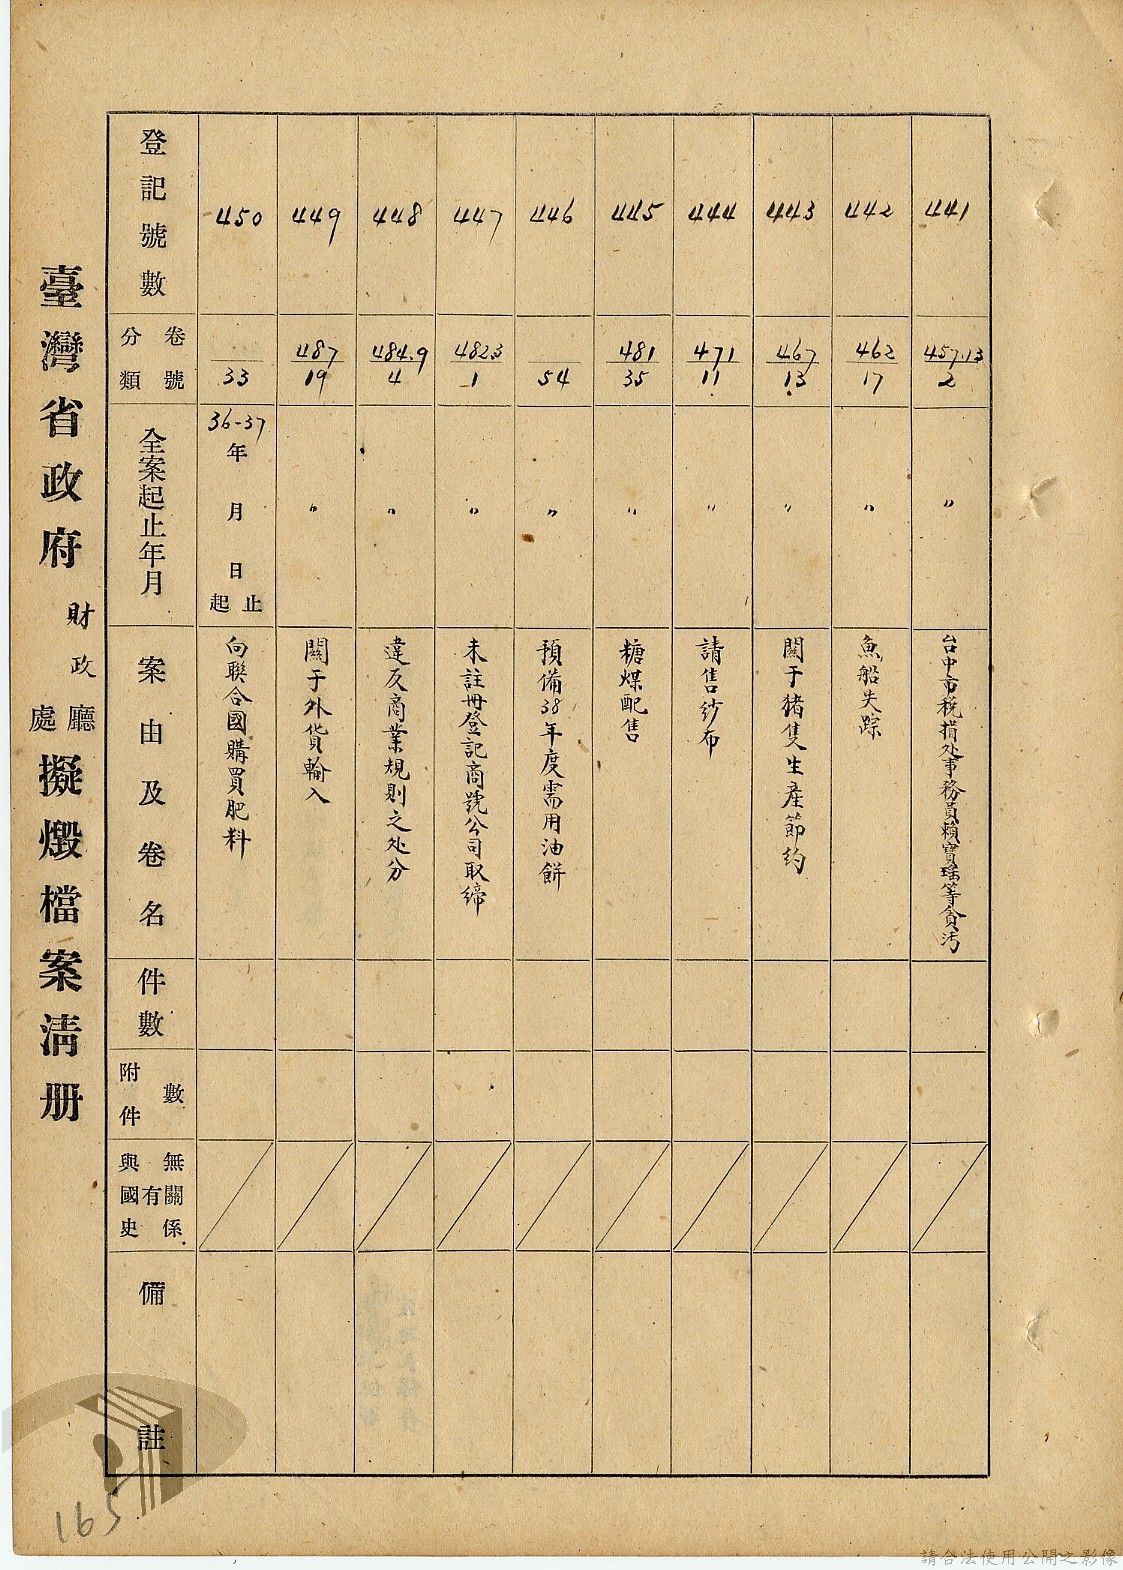 臺灣省政府財政廳處擬燬檔案淸册
登記號數
卷號
分類
全案起止年月
案由及卷名
件數
附件數
與國史有無關係
備註
450
33
36-37年月日起止
向聯合國購買肥料
449
487/19
〃
關于外貨輸入
448
484.9/4
〃
違反商業規則之处分
447
482.3/1
〃
未註冊登記商號公司取締
446
54
〃
預備38年度需用油餅
445
481/35
〃
糖煤配售
444
471/11
〃
請售紗布
443
467/13
〃
關于豬隻生產節約
442
462/17
〃
魚船失踪
441
457.13/2
〃
台中市稅捐处事務員賴寶瑤等貪污
165
請合法使用公開之影像